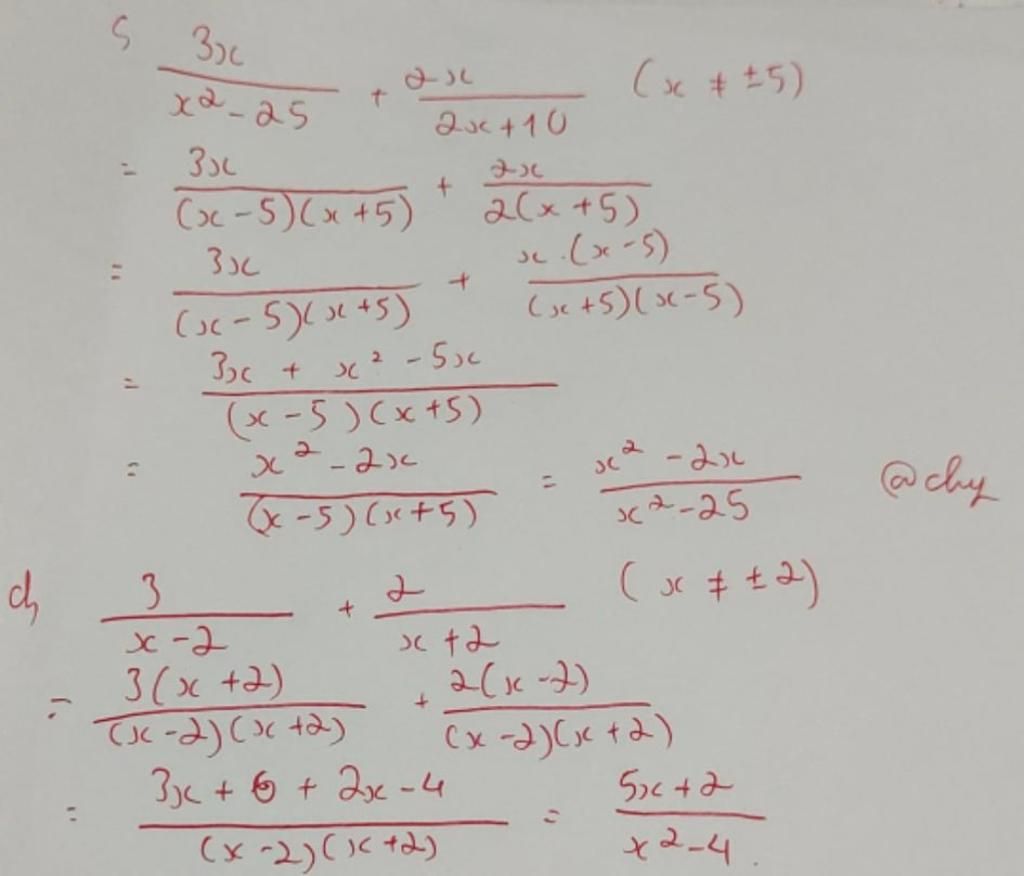 c, 3x/(x² - 25) + 2x/(2x + 10) (x ≠ ±5)
= 3x/((x - 5)(x + 5)) + 2x/(2(x + 5))
= 3x/((x - 5)(x + 5)) + x.(x - 5)/((x + 5)(x - 5))
= (3x + x² - 5x)/((x - 5)(x + 5))
= (x² - 2x)/((x - 5)(x + 5)) = (x² - 2x)/(x² - 25) @chy
d, 3/(x - 2) + 2/(x + 2) (x ≠ ±2)
= 3(x + 2)/((x - 2)(x + 2)) + 2(x - 2)/((x - 2)(x + 2))
= (3x + 6 + 2x - 4)/((x - 2)(x + 2)) = (5x + 2)/(x² - 4).